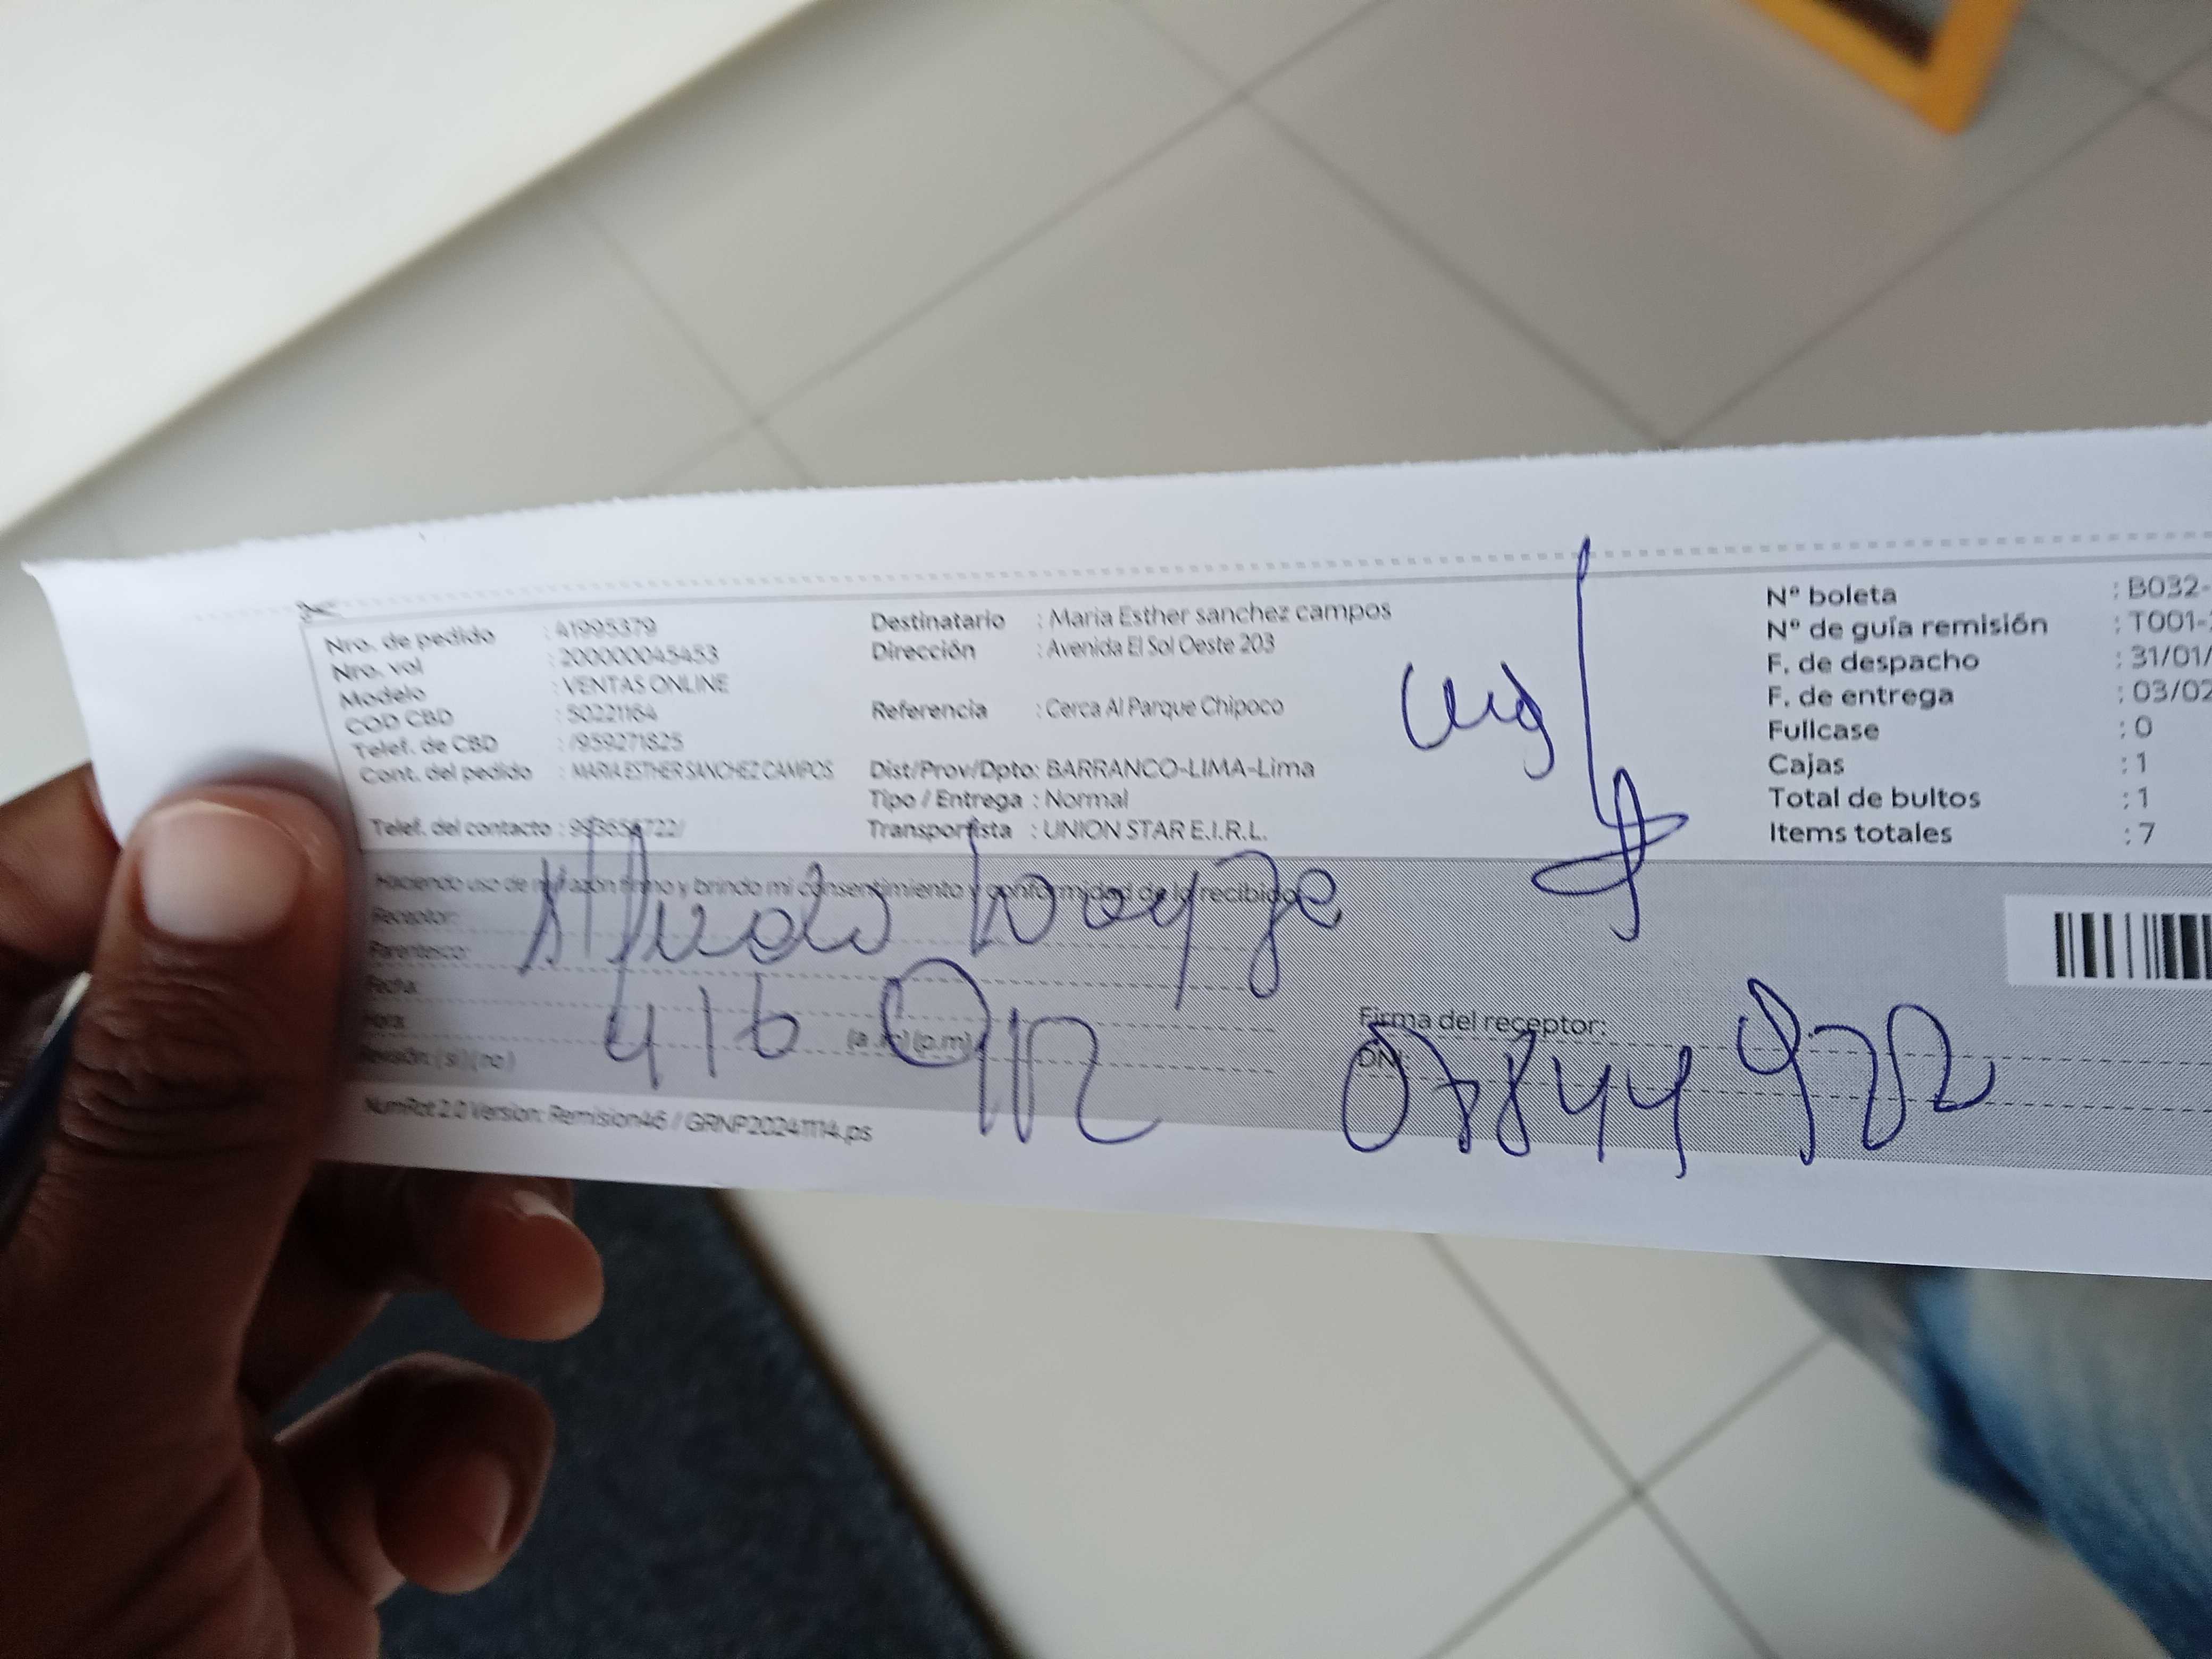 Nro. de pedido : 41995379
Nro. vol : 200000045453
Modelo : VENTAS ONLINE
COD CBD : 50221164
Telef. de CBD : /959271825
Cont. del pedido : MARIA ESTHER SANCHEZ CAMPOS
Telef. del contacto :
Destinatario : Maria Esther sanchez campos
Dirección : Avenida El Sol Oeste 203
Referencia : Cerca Al Parque Chipoco
Dist/Prov/Dpto: BARRANCO-LIMA-Lima
Tipo / Entrega : Normal
Transportista : UNION STAR E.I.R.L.
Nº boleta : B032-
Nº de guía remisión : T001-
F. de despacho : 31/01/
F. de entrega : 03/02
Fullcase : 0
Cajas : 1
Total de bultos : 1
Items totales : 7
Haciendo uso de mi razón firmo y brindo mi consentimiento y conformidad de lo recibido
Receptor:
Parentesco:
Fecha:
Hora: (a.m) (p.m)
Revisión: (si) (no)
416
Firma del receptor:
DNI:
07844972
NumRot 2.0 Version: Remision46 / GRNP20241114.ps